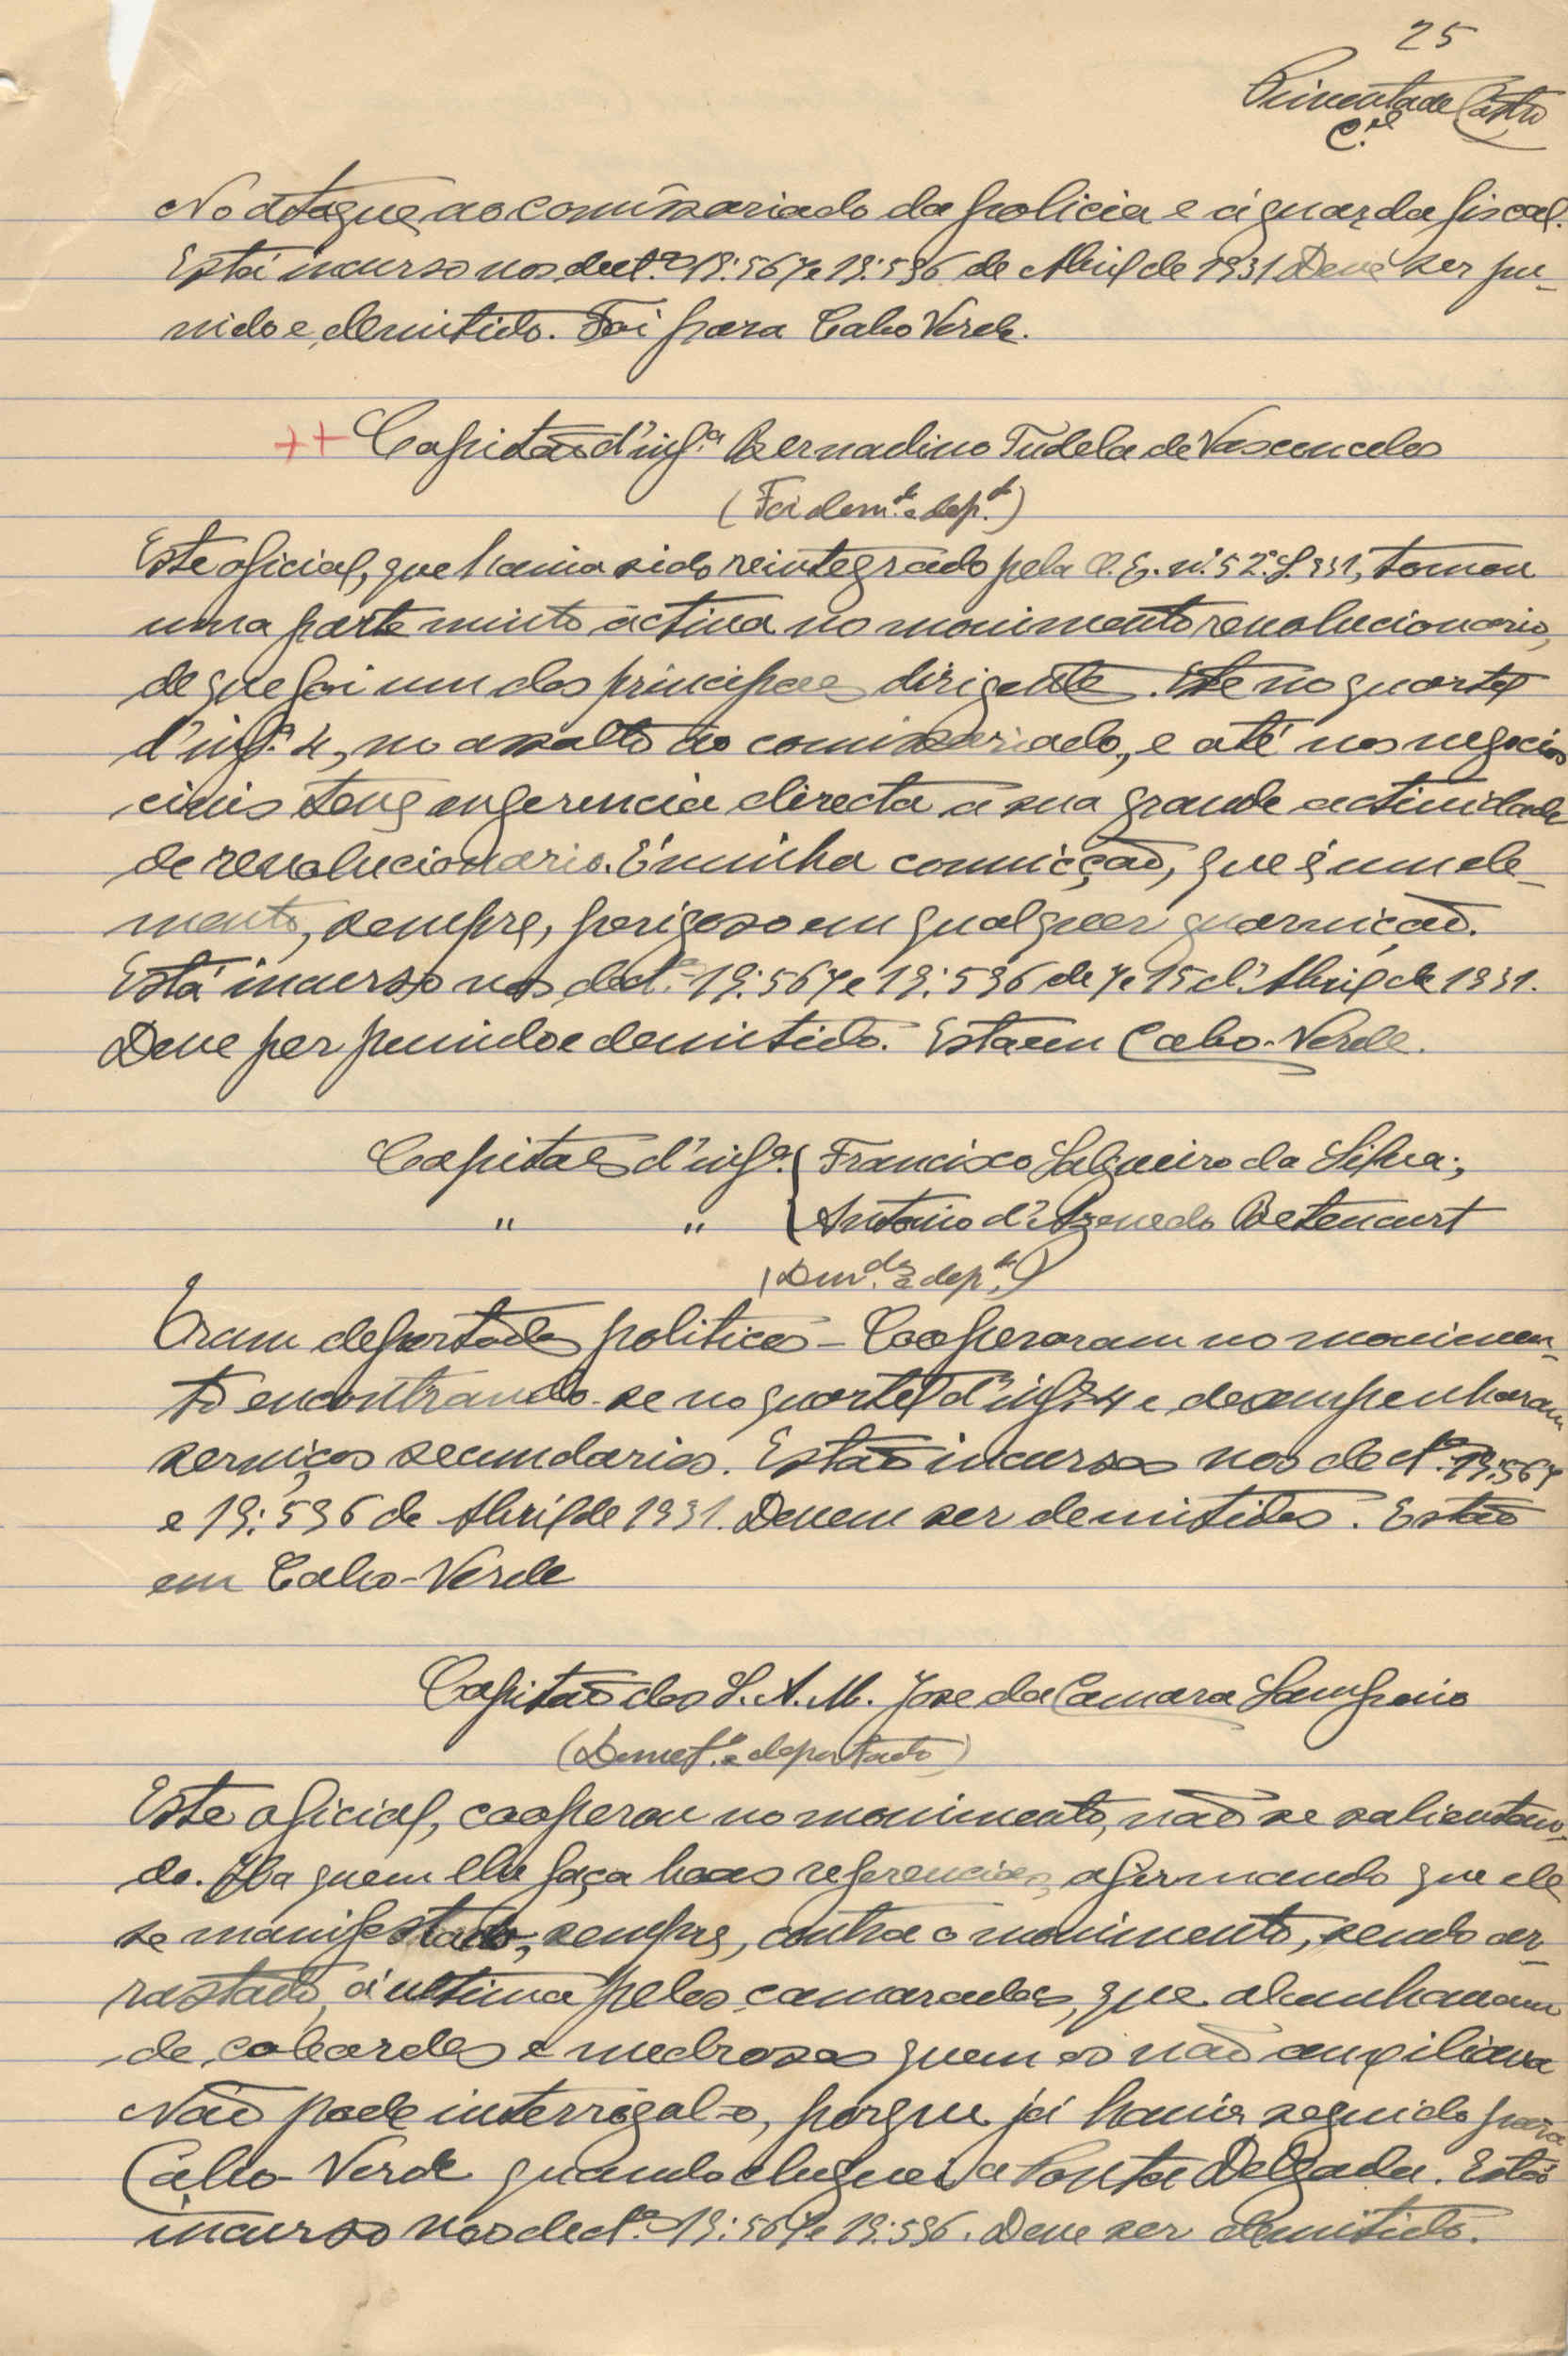 25
Pimenta de Castro
C.el
No ataque ao comissariado da policia e á guarda fiscal.
Está incurso nos dect.os 19:567 e 19:596 de Abril de 1931 Deve ser pu-
nido e demitido. Foi para Cabo Verde.
++ Capitão d'inf.a Bernadino Tudela de Vasconcelos
(Foi dem.do e dep.do)
Este oficial, que havia sido reintegrado pela O.E. n.º 5 2.ª S. 931, tomou
uma parte muito activa no movimento revolucionario,
de que foi um dos principaes dirigente. Este no quartel
d'inf.a 4, no assalto ao comissariado, e até nos negocios
civis teve ingerencia directa a sua grande actividade
de revolucionario. É minha convicção, que é um ele-
mento, sempre, perigoso em qualquer guarnição.
Está incurso nos dect.os 19:567 e 19:596 de 7 e 15 d'Abril de 1931.
Deve per punido e demitido. Esta em Cabo-Verde.
Capitaes d'inf.a { Francisco Salgueiro da Silva;
" " { Antonio d'Azevedo Betencurt
(Dem.dos e dep.dos)
Eram deportados politicos - Cooperaram no movimen-
to encontrando-se no quartel d'inf.a 4 e desempenharam
serviços secundarios. Estão incursos nos dect.os 19:567
e 19:596 de Abril de 1931. Devem ser demitidos. Estão
em Cabo-Verde
Capitão do S. A. M. Jose da Camara Sampaio
(Demet.do e deportado)
Este oficial, cooperou no movimento, não se salientan-
do. Ha quem lhe faça boas referencias, afirmando que ele
se manifestado, sempre, contra o movimento, sendo ar-
rastado, á ultima pelos camaradas, que alcunhavam
de cobardes e medrosos quem os não auxiliava
Não pode interrogal-o, porque já havia seguido para
Cabo-Verde quando cheguei a Ponta Delgada. Está
incurso nos dect.os 19:567 e 19:596. Deve ser demitido.